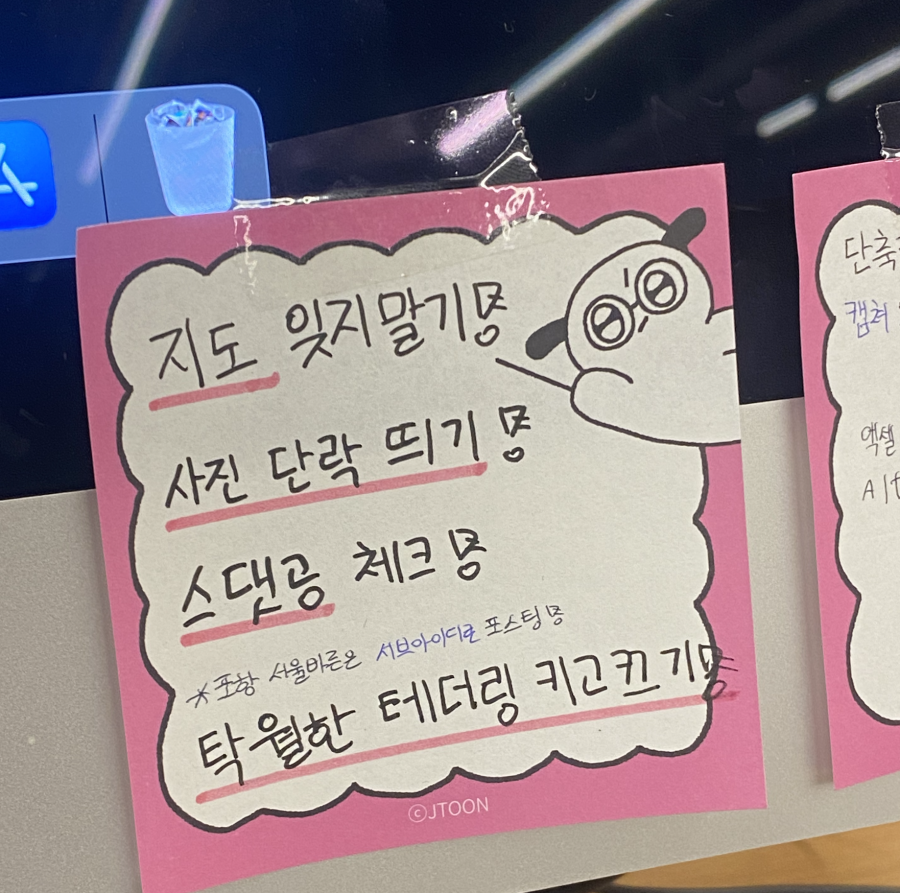 지도 잊지말기!
사진 단락 띄기!
스댓공 체크!
*포항 서울바른은 서브아이디로 포스팅!
탁월한 테더링 키고끄기!
©JTOON
단축
캡쳐
엑셀
Alt